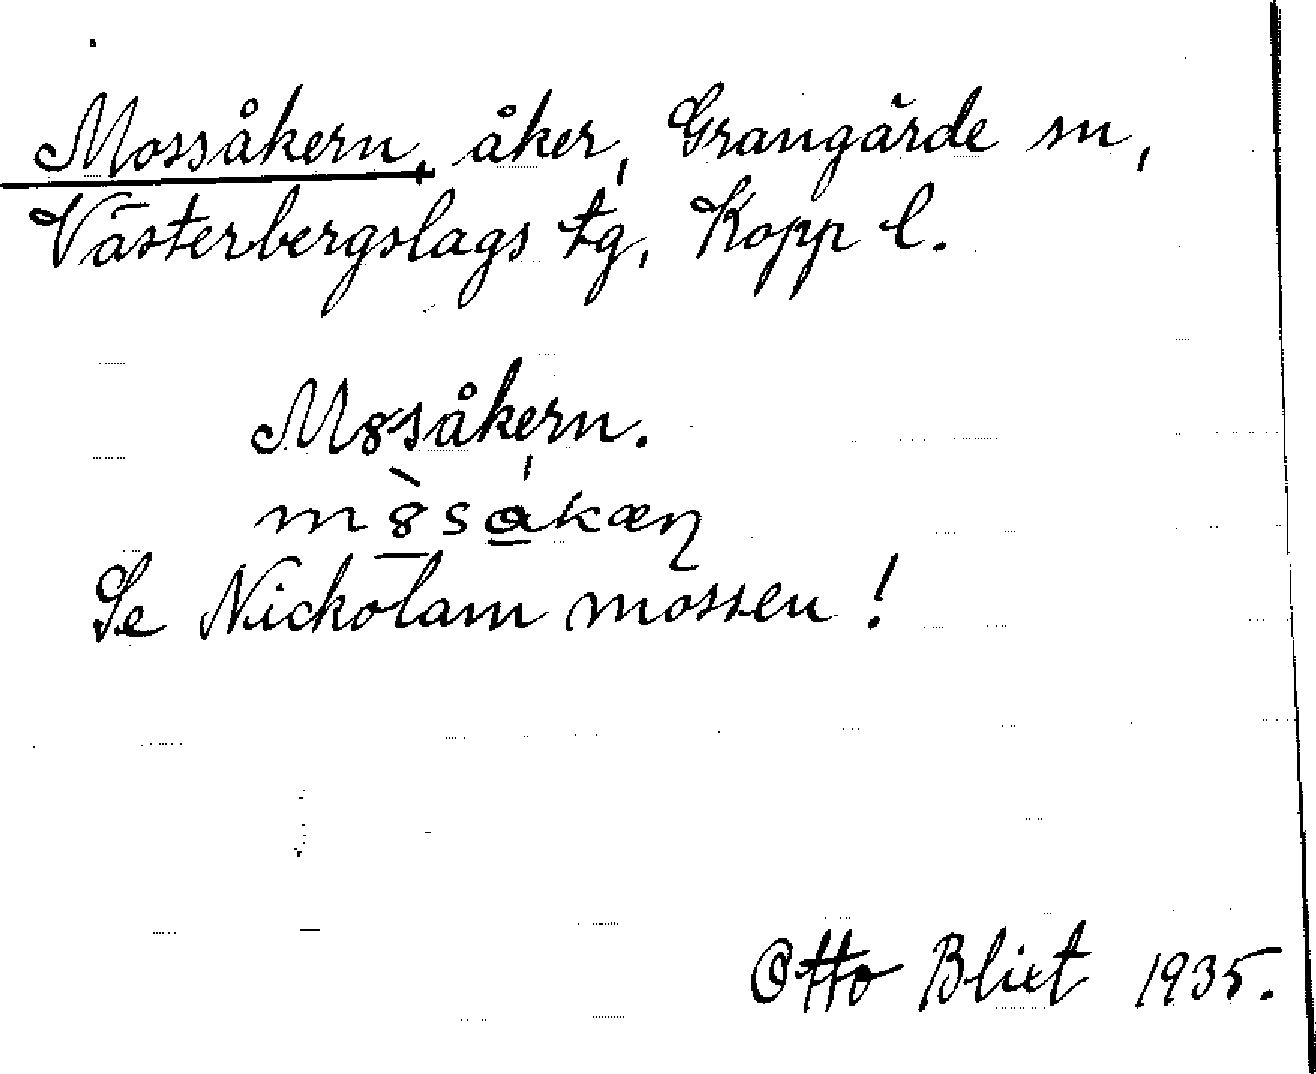 Mossåkern, åker, Grangärde sn,
Västerbergslags tg, Kopp l.
M8såkern.
m8̀sa̱kæŋ
Se Nickolam mossen!
Otto Blixt 1935.